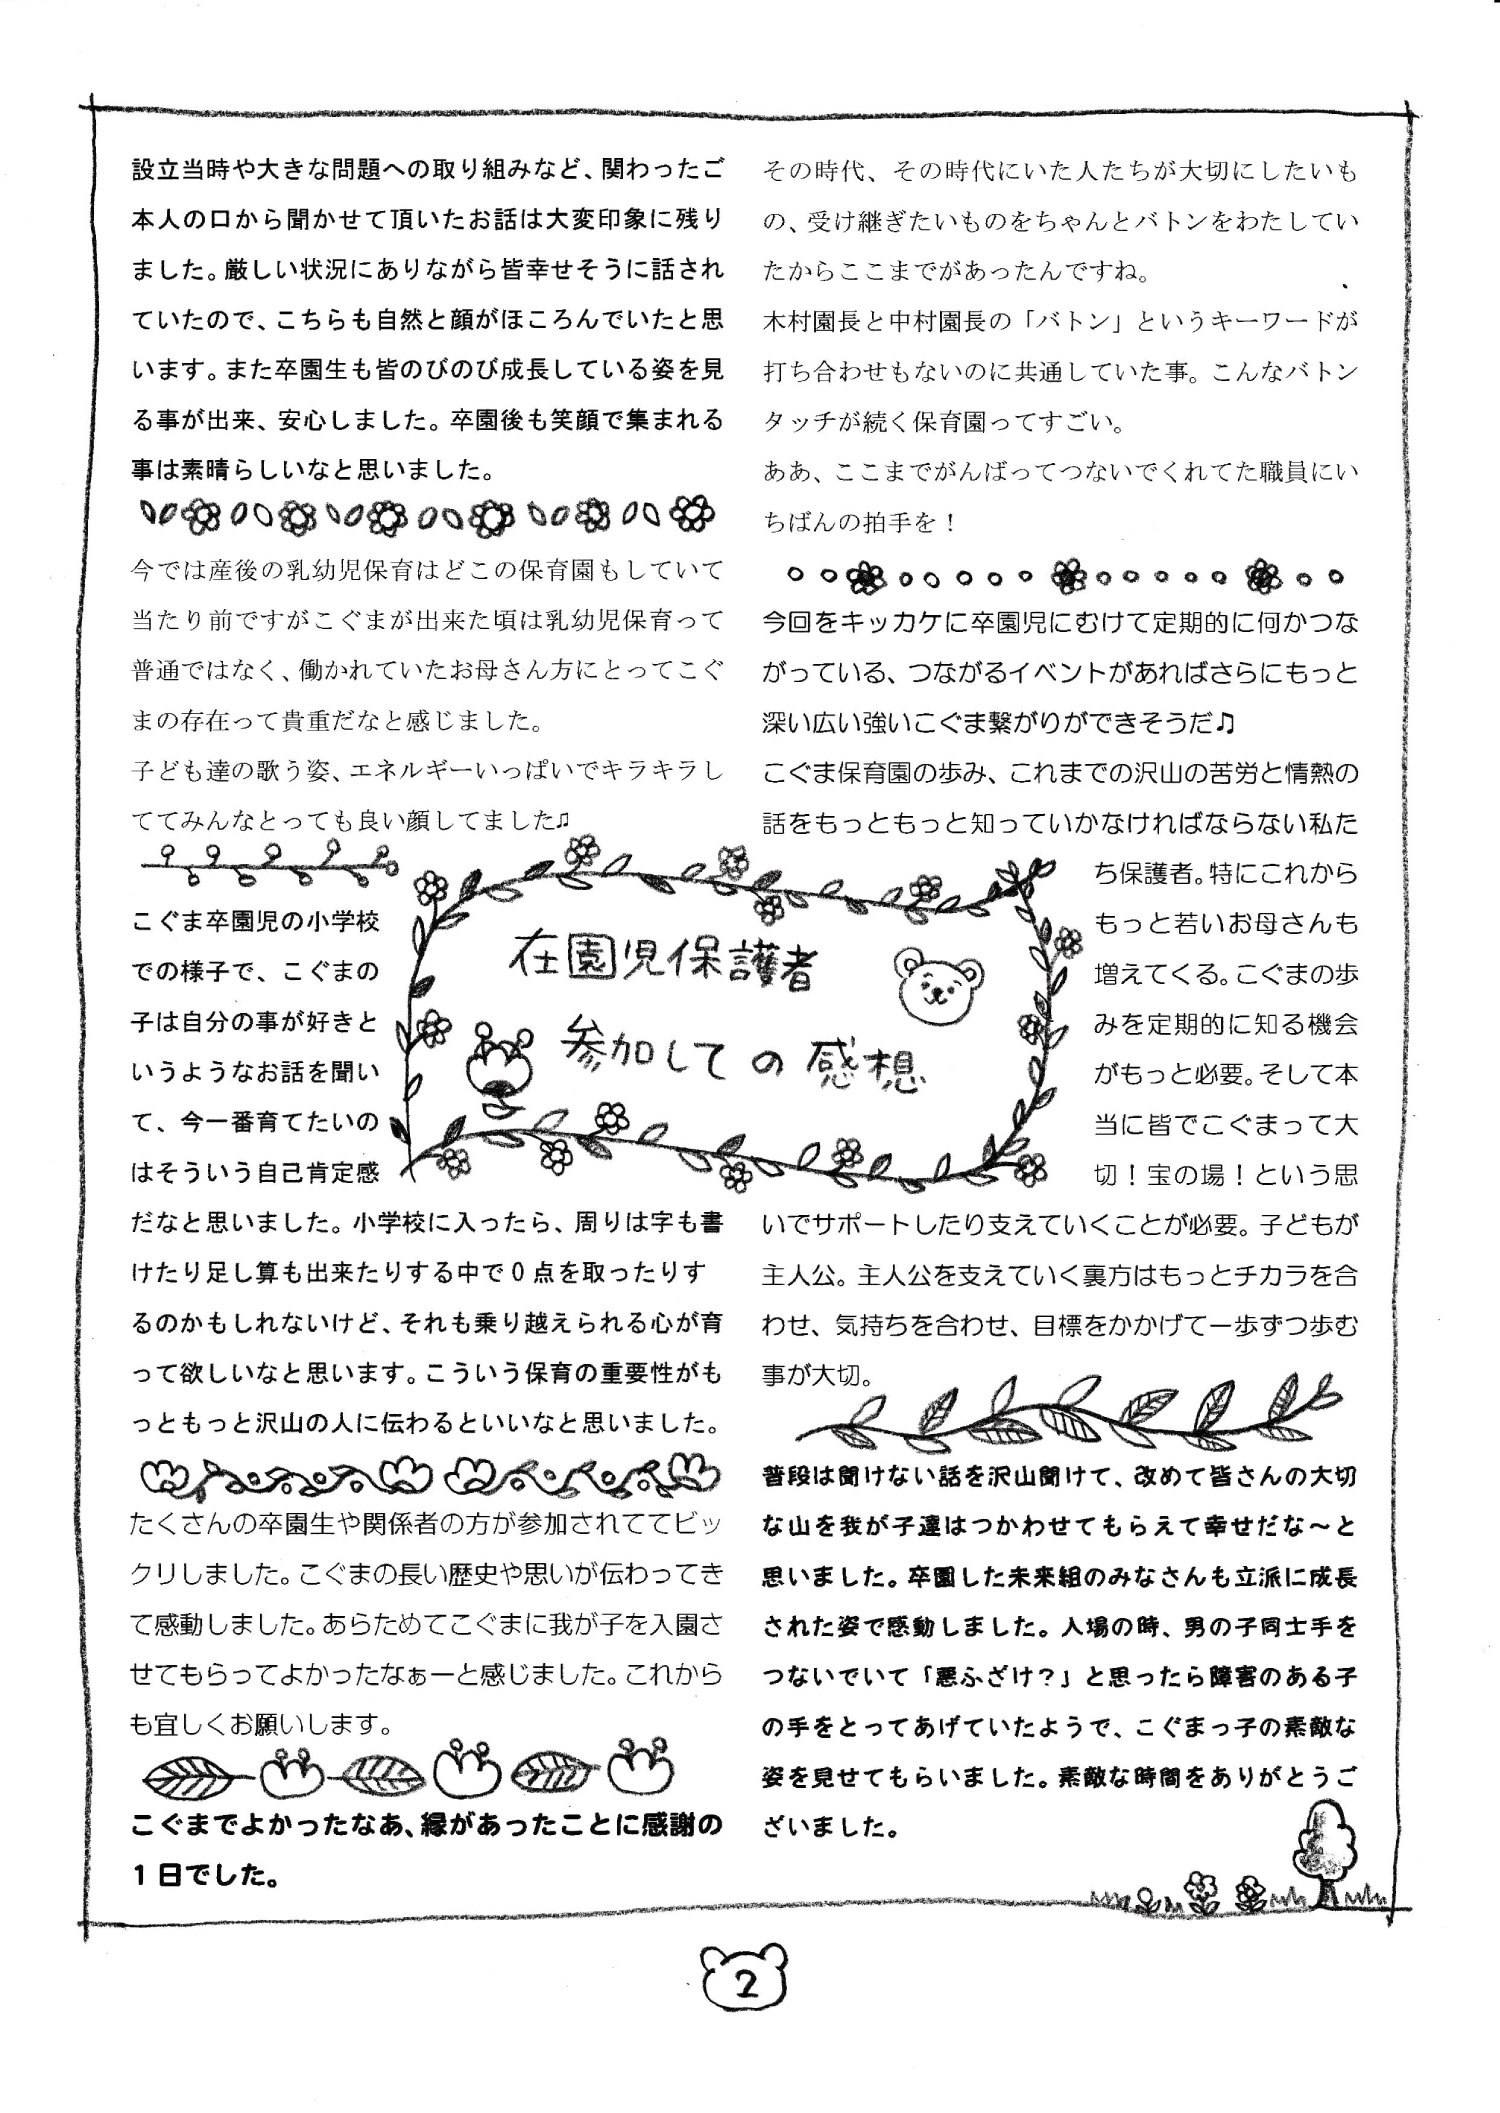 設立当時や大きな問題への取り組みなど、関わったご
本人の口から聞かせて頂いたお話は大変印象に残り
ました。厳しい状況にありながら皆幸せそうに話され
ていたので、こちらも自然と顔がほころんでいたと思
います。また卒園生も皆のびのび成長している姿を見
る事が出来、安心しました。卒園後も笑顔で集まれる
事は素晴らしいなと思いました。
今では産後の乳幼児保育はどこの保育園もしていて
当たり前ですがこぐまが出来た頃は乳幼児保育って
普通ではなく、働かれていたお母さん方にとってこぐ
まの存在って貴重だなと感じました。
子ども達の歌う姿、エネルギーいっぱいでキラキラし
ててみんなとっても良い顔してました♫
在園児保護者
参加しての感想
こぐま卒園児の小学校
での様子で、こぐまの
子は自分の事が好きと
いうようなお話を聞い
て、今一番育てたいの
はそういう自己肯定感
だなと思いました。小学校に入ったら、周りは字も書
けたり足し算も出来たりする中で０点を取ったりす
るのかもしれないけど、それも乗り越えられる心が育
って欲しいなと思います。こういう保育の重要性がも
っともっと沢山の人に伝わるといいなと思いました。
たくさんの卒園生や関係者の方が参加されててビッ
クリしました。こぐまの長い歴史や思いが伝わってき
て感動しました。あらためてこぐまに我が子を入園さ
せてもらってよかったなぁーと感じました。これから
も宜しくお願いします。
こぐまでよかったなあ、縁があったことに感謝の
１日でした。
その時代、その時代にいた人たちが大切にしたいも
の、受け継ぎたいものをちゃんとバトンをわたしてい
たからここまでがあったんですね。
木村園長と中村園長の「バトン」というキーワードが
打ち合わせもないのに共通していた事。こんなバトン
タッチが続く保育園ってすごい。
ああ、ここまでがんばってつないでくれてた職員にい
ちばんの拍手を！
今回をキッカケに卒園児にむけて定期的に何かつな
がっている、つながるイベントがあればさらにもっと
深い広い強いこぐま繋がりができそうだ♫
こぐま保育園の歩み、これまでの沢山の苦労と情熱の
話をもっともっと知っていかなければならない私た
ち保護者。特にこれから
もっと若いお母さんも
増えてくる。こぐまの歩
みを定期的に知る機会
がもっと必要。そして本
当に皆でこぐまって大
切！宝の場！という思
いでサポートしたり支えていくことが必要。子どもが
主人公。主人公を支えていく裏方はもっとチカラを合
わせ、気持ちを合わせ、目標をかかげて一歩ずつ歩む
事が大切。
普段は聞けない話を沢山聞けて、改めて皆さんの大切
な山を我が子達はつかわせてもらえて幸せだな～と
思いました。卒園した未来組のみなさんも立派に成長
された姿で感動しました。入場の時、男の子同士手を
つないでいて「悪ふざけ？」と思ったら障害のある子
の手をとってあげていたようで、こぐまっ子の素敵な
姿を見せてもらいました。素敵な時間をありがとうご
ざいました。
2